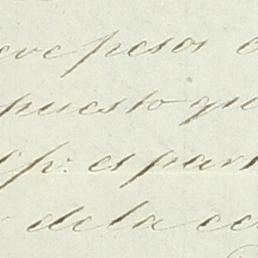 eve pesos
puesto que
p.r es par
de la ec